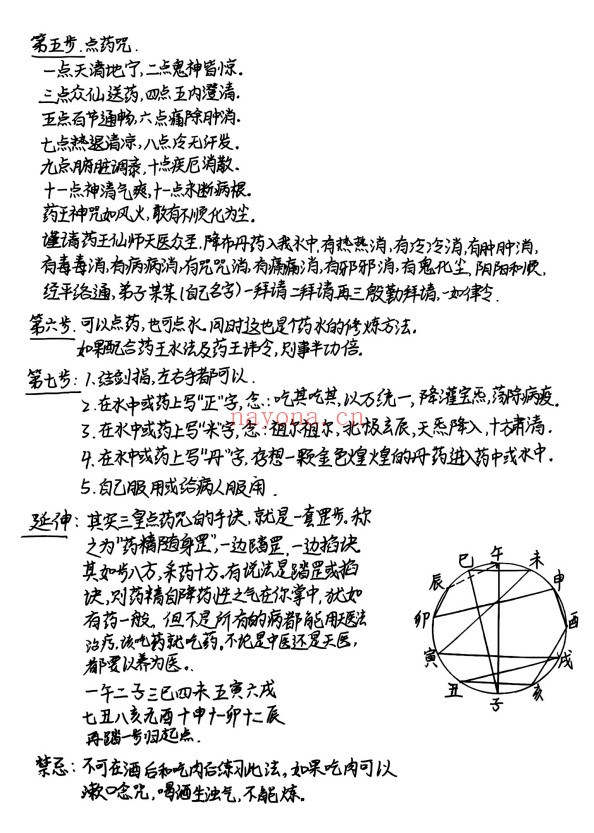 第五步.点药咒.
一点天清地宁,二点鬼神皆惊.
三点众仙送药,四点五内澄清.
五点百节通畅,六点痛除肿消.
七点热退清凉,八点冷无汗发.
九点腑脏调泰,十点疾厄消散.
十一点神清气爽,十一点永断病根.
药王神咒如风火,敢有不顺化为尘.
谨请药王仙师天医众圣,降布丹药入我水中,有热热消,有冷冷消,有肿肿消,
有毒毒消,有病病消,有咒咒消,有痛痛消,有邪邪消,有鬼化尘,阴阳和顺,
经平络通,弟子某某(自己名字)一拜请二拜请再三殷勤拜请,一如律令.
第六步.可以点药,也可点水.同时这也是个药水的修炼方法.
如果配合药王水法及药王讳令,则事半功倍.
第七步:1.结剑指,左右手都可以.
2.在水中或药上写"正"字,念:吃其吃其,以万统一,降灌宝炁,荡除病疫.
nayona.cn
3.在水中或药上写"米"字,念:祖尔祖尔,北极玄辰,天炁降入,十方肃清.
4.在水中或药上写"丹"字,存想一颗金色煌煌的丹药进入药中或水中.
5.自己服用或给病人服用.
延伸:其实三皇点药咒的手诀,就是一套罡步.称
之为"药精随身罡",一边踏罡,一边掐诀.
其如步八方,采药十方.有说法是踏罡或掐
诀,则药精自降药性之气在你掌中,犹如
有药一般.但不是所有的病都能用天医法
治疗,该吃药就吃药.不论是中医还是天医,
都要以养为医.
一午二子三巳四未五寅六戌
七丑八亥九酉十申十一卯十二辰
再踏一步归起点.
巳 午 未
辰 申
卯 酉
寅 戌
丑 子 亥
禁忌:不可在酒后和吃肉后练习此法.如果吃肉可以
漱口念咒,喝酒生浊气,不能炼.